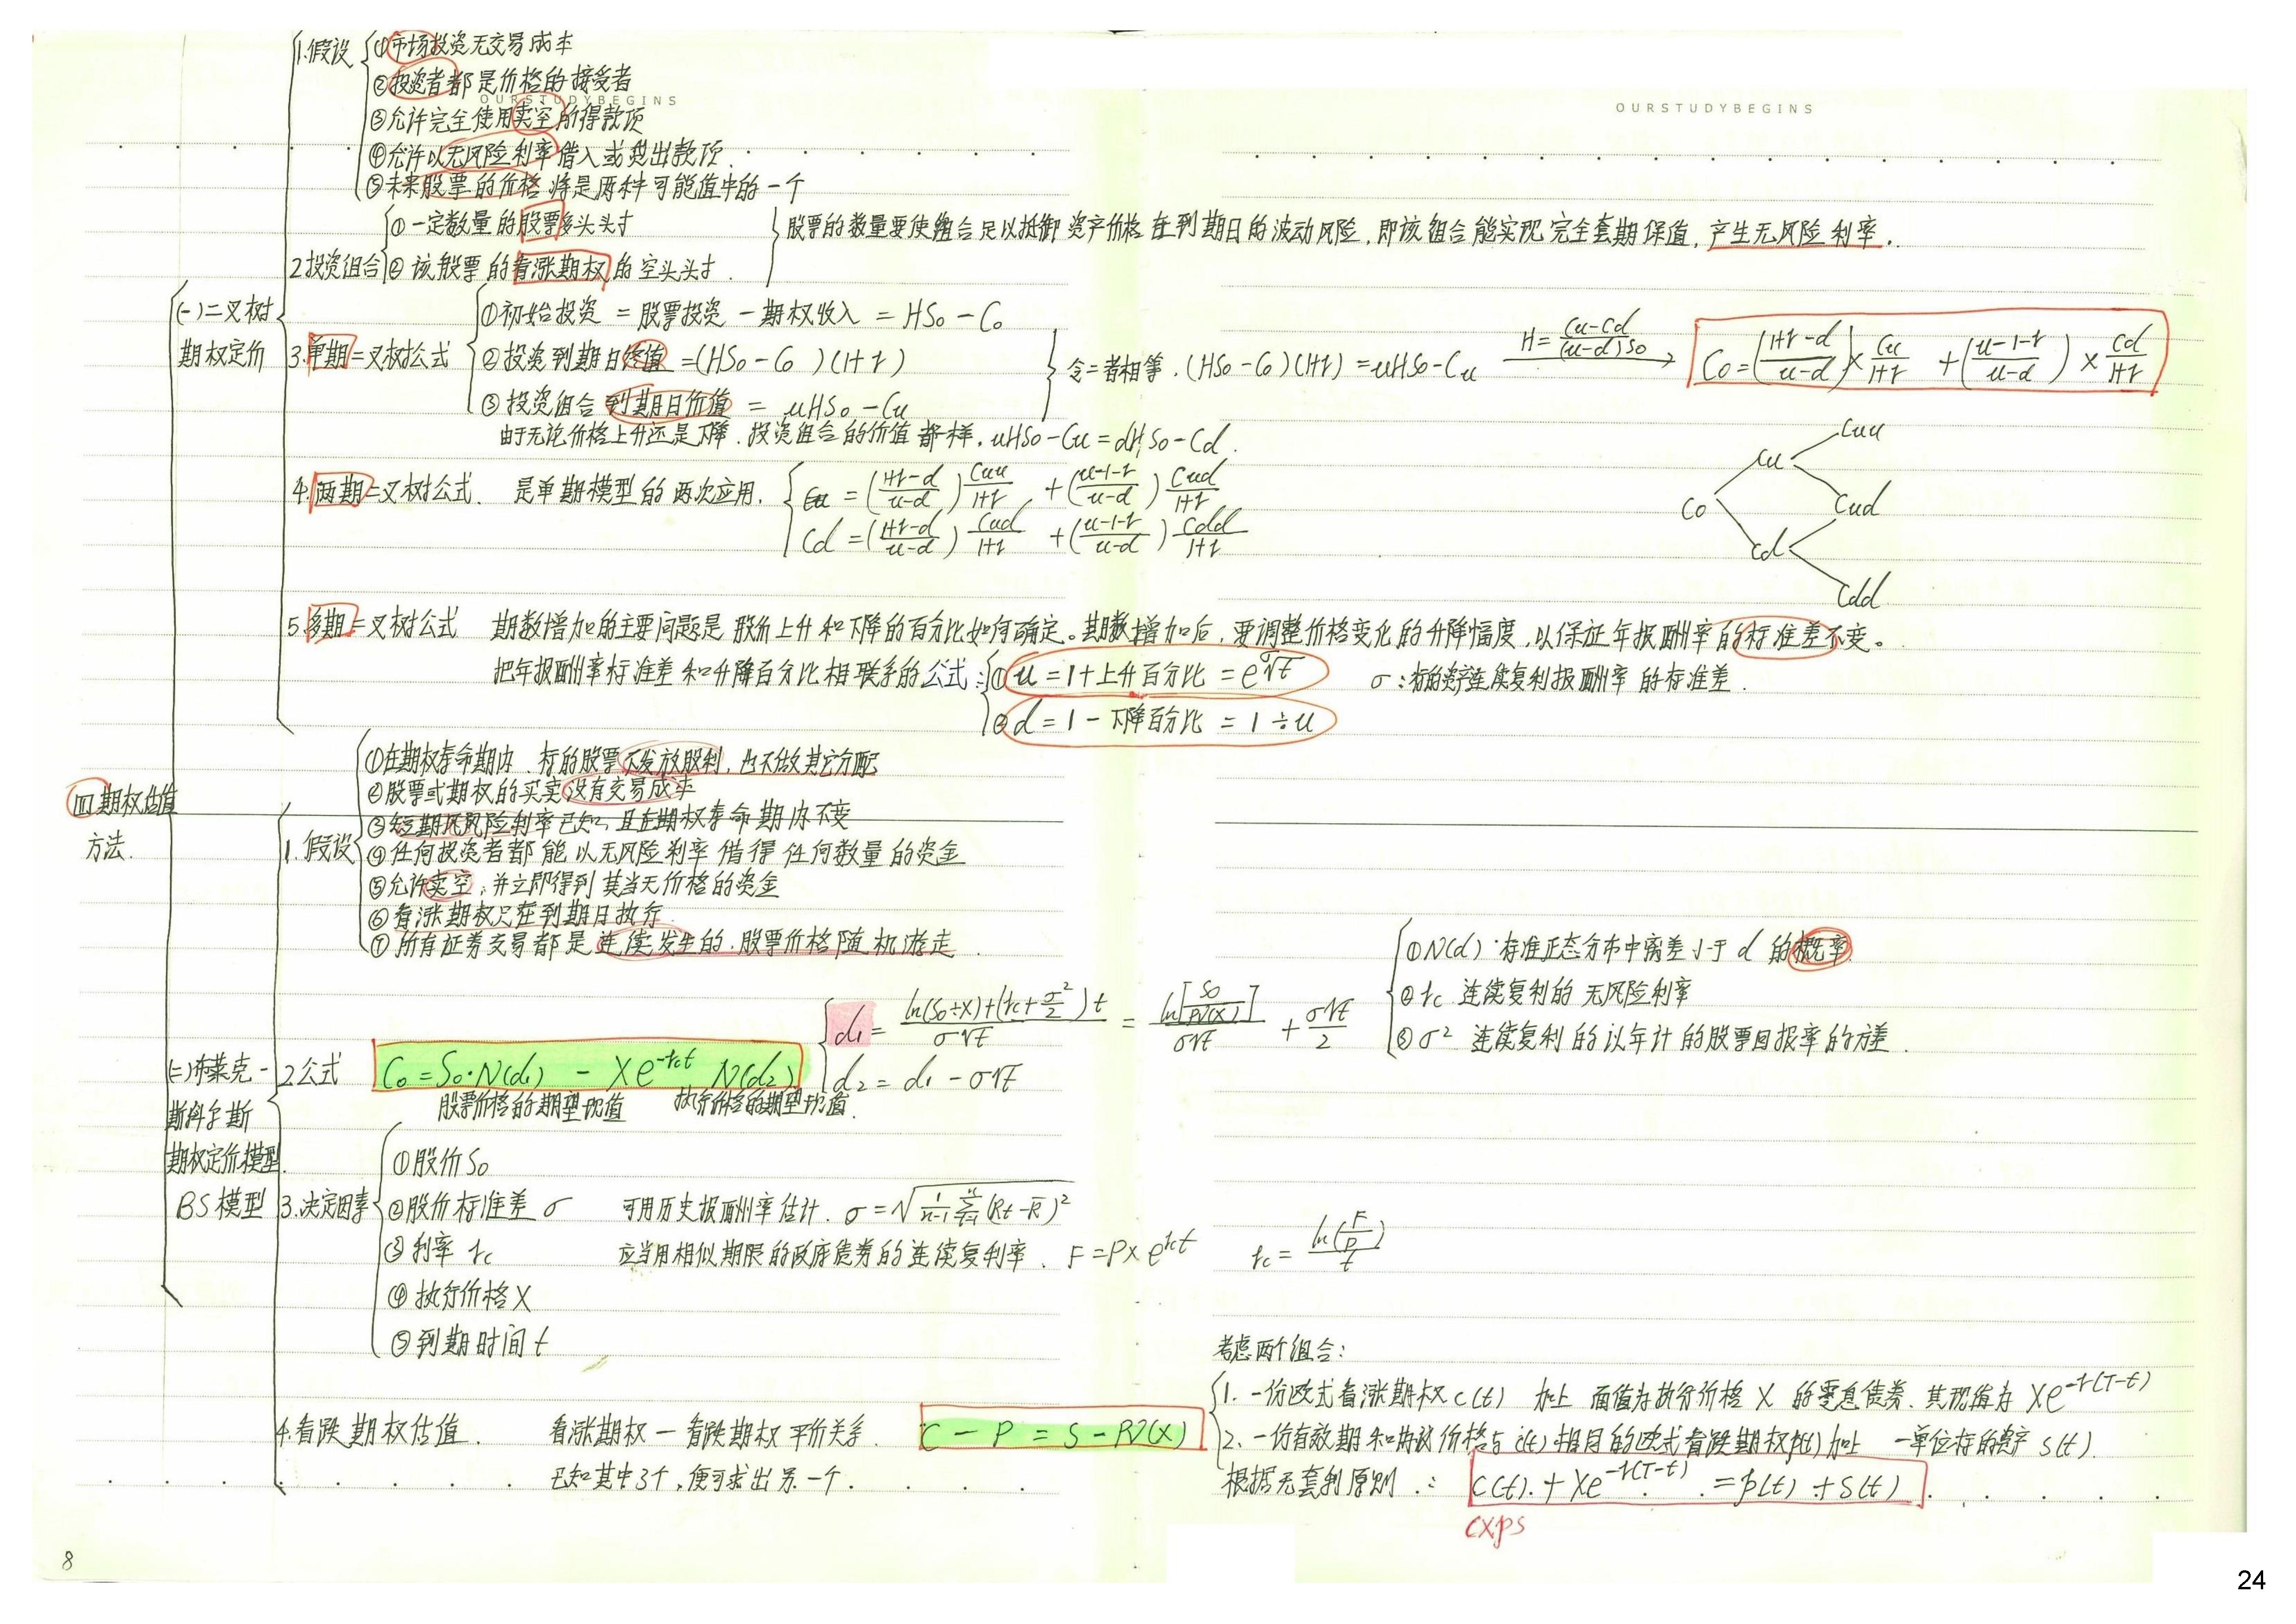 1.假设
①市场投资无交易成本
②投资者都是价格的接受者
OURSTUDYBEGINS
OURSTUDYBEGINS
③允许完全使用卖空所得款项
④允许以无风险利率借入或贷出款项.
⑤未来股票的价格将是两种可能值中的一个
2投资组合
①一定数量的股票多头头寸
②该股票的看涨期权的空头头寸.
股票的数量要使组合足以抵御资产价格在到期日的波动风险,即该组合能实现完全套期保值,产生无风险利率.
(一)二叉树
期权定价
3.单期二叉树公式
①初始投资 = 股票投资 - 期权收入 = HS₀ - C₀
②投资到期日终值 = (HS₀ - C₀)(1+r)
③投资组合到期日价值 = uHS₀ - Cu
令二者相等.(HS₀ - C₀)(1+r) = uHS₀ - Cu
H = (Cu-Cd)/((u-d)S₀)
C₀ = ((1+r-d)/(u-d)) × Cu/(1+r) + ((u-1-r)/(u-d)) × Cd/(1+r)
由于无论价格上升还是下降.投资组合的价值都一样. uHS₀ - Cu = dHS₀ - Cd.
4.两期二叉树公式. 是单期模型的两次应用.
Cu = ((1+r-d)/(u-d)) Cuu/(1+r) + ((u-1-r)/(u-d)) Cud/(1+r)
Cd = ((1+r-d)/(u-d)) Cud/(1+r) + ((u-1-r)/(u-d)) Cdd/(1+r)
Cuu
Cu
C₀
Cud
Cd
Cdd
5.多期二叉树公式 期数增加的主要问题是股价上升和下降的百分比如何确定。期数增加后,要调整价格变化的升降幅度,以保证年报酬率的标准差不变。
把年报酬率标准差和升降百分比相联系的公式:
①u = 1+上升百分比 = e^σ√t
σ:标的资产连续复利报酬率的标准差.
②d = 1 - 下降百分比 = 1÷u
四期权估值
方法.
1.假设
①在期权寿命期内.标的股票不发放股利,也不做其它分配
②股票或期权的买卖没有交易成本
③短期无风险利率已知,且在期权寿命期内不变
④任何投资者都能以无风险利率借得任何数量的资金
⑤允许卖空,并立即得到其当天价格的资金
⑥看涨期权只在到期日执行
⑦所有证券交易都是连续发生的.股票价格随机游走.
(二)布莱克-
斯科尔斯
期权定价模型.
BS模型
2公式
C₀ = S₀·N(d₁) - Xe^-rct N(d₂)
股票价格的期望现值 执行价格的期望现值.
d₁ = (ln(S₀÷X)+(rc+σ²/2)t)/(σ√t) = ln[S₀/PV(X)]/(σ√t) + σ√t/2
d₂ = d₁ - σ√t
①N(d)·标准正态分布中离差小于d的概率.
②rc 连续复利的无风险利率
③σ² 连续复利的以年计的股票回报率的方差.
3.决定因素
①股价S₀
②股价标准差σ 可用历史报酬率估计. σ = √(1/(n-1) Σ(t=1→n)(Rt-R̄)²)
③利率 rc 应当用相似期限的政府债券的连续复利率. F = P×e^rct rc = ln(F/P)/t
④执行价格X
⑤到期时间t
4.看跌期权估值. 看涨期权-看跌期权平价关系. C - P = S - PV(X)
已知其中3个,便可求出另一个.
考虑两个组合:
1.一份欧式看涨期权c(t) 加上 面值为执行价格X的零息债券.其现值为Xe^-r(T-t)
2.一份有效期和协议价格与c(t)相同的欧式看跌期权p(t)加上一单位标的资产s(t).
根据无套利原则.: C(t)+Xe^-r(T-t) = p(t)+S(t)
cxps
8
24